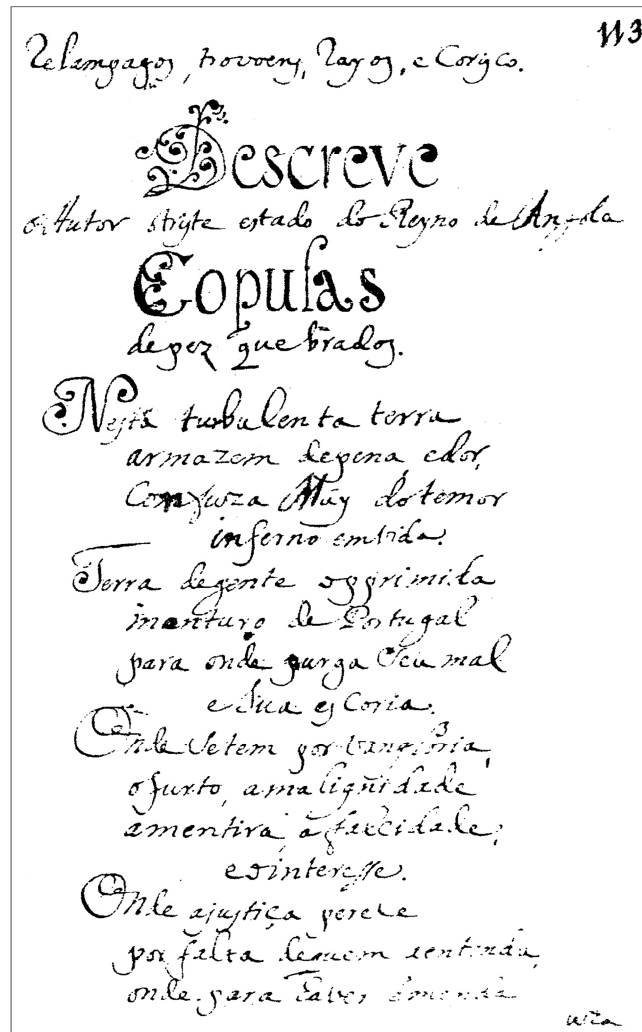 113
Relampagos, trovoens, Rayos, e Corisco.
Descreve
o Autor o triste estado do Reyno de Angola
Copulas
de pez quebrados.
Nesta turbulenta terra
armazem de pena, e dor,
Confuza Mãy do temor
inferno em vida.
Terra de gente opprimida
monturo de Portugal
para onde purga seu mal
e sua escoria.
Onde se tem por vangloria,
o furto, a malignidade
a mentira, a falcidade,
e o interesse.
Onde a justiça perece
por falta de quem a entenda,
onde para haver emenda